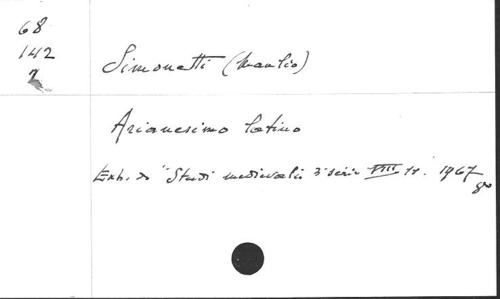 68
142
2
Simonetti (Manlio)
Arianesimo latino
Extr. de "Studi medievali 3 serie VIII 11. 1967